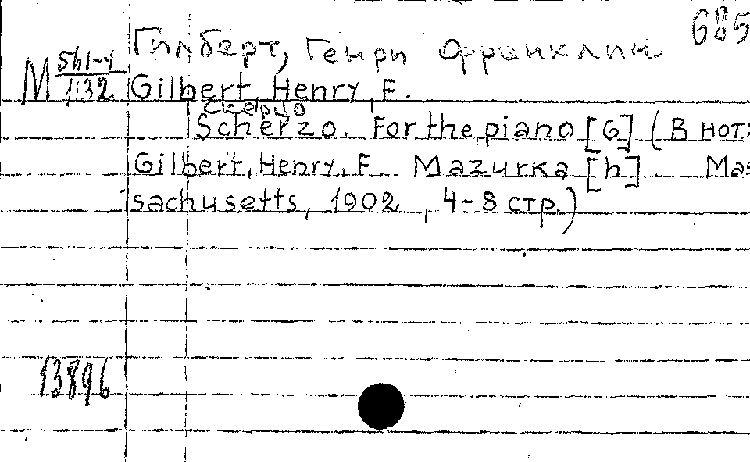 685
Гилберт, Генри Франклин
М 561-4/1132
Gilbert, Henry, F.
Скерцо
Scherzo. For the piano [G] (В нот:
Gilbert, Henry, F. Mazurka [h]. Mas
sachusetts, 1902, 4-8 стр.)
13896